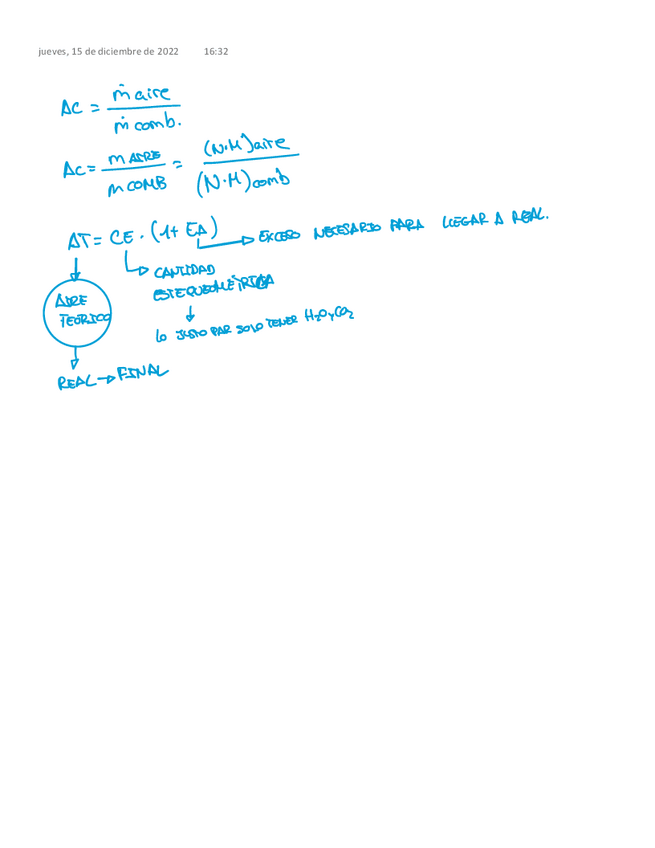 jueves, 15 de diciembre de 2022 16:32
AC = ṁ aire / ṁ comb.
AC = m AIRE / m COMB = (N·M)aire / (N·M)comb
AT = CE · (1+ EA) → EXCESO NECESARIO PARA LLEGAR A REAL.
CANTIDAD
ESTEQUEOMÉTRICA
AIRE
TEORICO
lo JUSTO PAR SOLO TENER H2O y CO2
REAL → FINAL